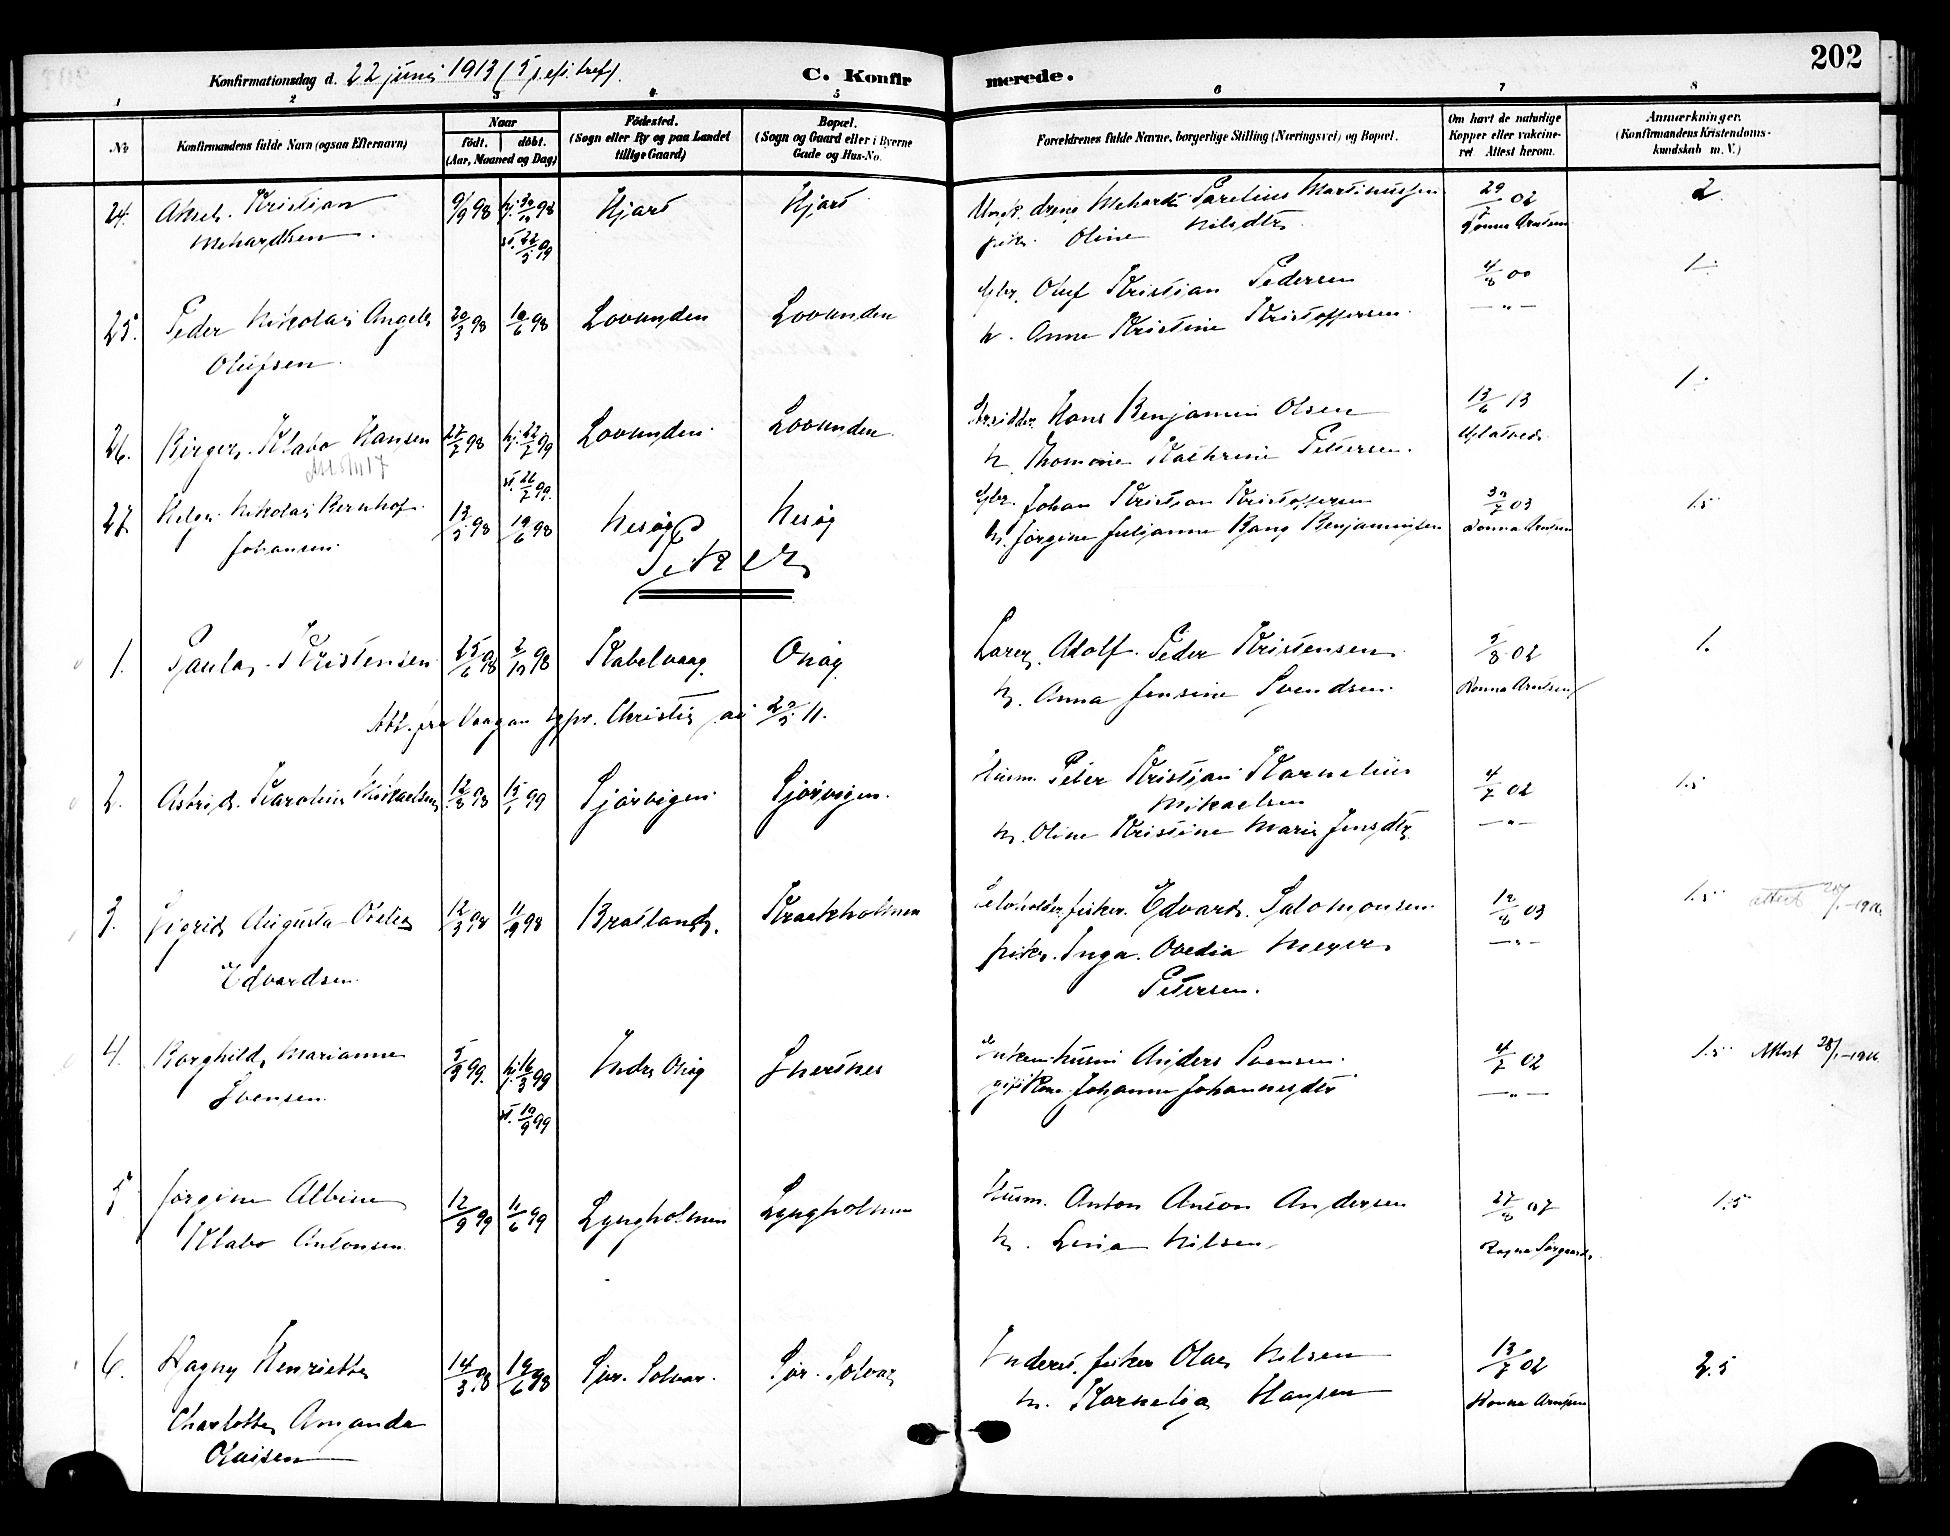 202
Konfirmationsdag d. 22 juni 1913 (5 s. eft. tref.)
C. Konfirmerede.
1 2 3 4 5 6 7 8
No
Konfirmandens fulde Navn (ogsaa Efternavn)
Naar
födt. döbt.
(Aar, Maaned og Dag)
Födested.
(Sogn eller By og paa Landet
tillige Gaard)
Bopæl.
(Sogn og Gaard eller i Byerne
Gade og Hus-No.
Forældrenes fulde Navne, borgerlige Stilling (Næringsvei) og Bopæl.
Om havt de naturlige
Kopper eller vakcine-
ret Attest herom.
Anmærkninger.
(Konfirmandens Kristendoms-
kundskab m. V.)
24. Aksel Kristian 9/9 98 hj. 30/10 98 Hjart Hjart Ungk. dreng Mehard Parelius Martinussen 29/7 02 2
Mehardsen. st. 22/5 99 pike Oline Nilsdtr Arntsen
25. Peder Nikolai Angel 20/3 98 19/6 98 Lovunden Lovunden Gbr. Oluf Kristian Pedersen 4/8 00 1.
Olufsen. h. Anne Kristine Kristoffersen. — " —
26. Birger Klabo Hansen 27/7 98 hj. 22/7 99 Lovunden Lovunden Hans Benjamin Olsen 13/6 13 1.
st. 26/7 99. h. Thomine Kathrine Petersen.
27. Helge Nikolai Bernhof 13/3 98 19/6 98 Nesøy Nesøy Gbr. Johan Kristian Kristoffersen 30/7 03 1.5
Johansen. h. Jørgine Juljanne Bang Benjaminsen Ronna Arntsen
Piker
1. Paula Kristensen 25/6 98 2/10 98 Kabelvaag Onøy Lærer Adolf Peder Kristensen 5/8 02 1.
h. Anna Jensine Svendsen. Ronna Arntsen
Att. fra Vaagan sgpr. Christie av 20/5 11.
2. Astrid Karoline Mikaelsen 12/8 98 15/1 99 Sjørvigen Sjørvigen. Husm. Peter Kristjan Kornelius 4/7 02 1.5
Mikaelsen
h. Oline Kristine Marie Jensdtr. — " —
3. Sigrid Augusta Ovelia 12/3 98 11/9 98 Bratland Kraakholmen Selvholder, fisker. Edvard Salomonsen 19/8 03 1.5 attest 28/1-1916
Edvardsen pike Inga Ovedia Meyer — " —
Petersen.
4. Borghild Marianne 5/3 99. hj. 16/3 99 Indre Onøy husm Anders Svensen. 4/7 02 1.5 Attest 28/1-1916
Svensen st. 10/9 99 Johanna Johannesdtr — " —
5 Jørgine Albine 12/9 99 11/6 99 Lyngholmen Lyngholmen Husm. Anton Anton Andersen 27/8 07 1.5
Klabo Antonsen h. Lena Nilsen Ragna Sørgaard
6. Dagny Henriette 14/3 98 19/6 98 Sør-Solvær Sør-Solvær Inderst, fisker Olai Nilsen 13/7 02 2.5
Charlotte Amanda h. Kornelia Hansen Ronna Arntsen
Olaisen